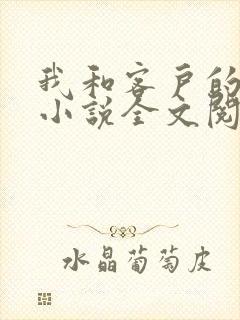 我和客户的
小说全文阅
水晶葡萄皮